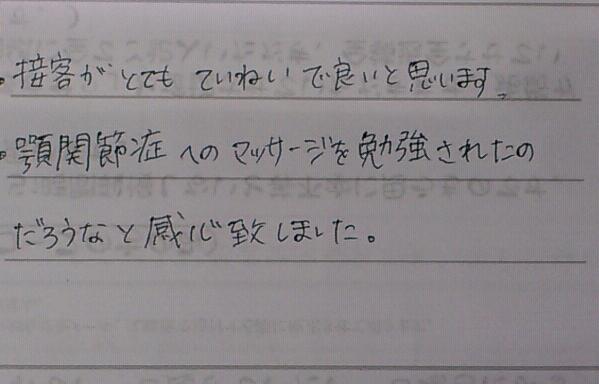 ・接客がとてもていねいで良いと思います。
・顎関節症へのマッサージを勉強されたの
だろうなと感心致しました。